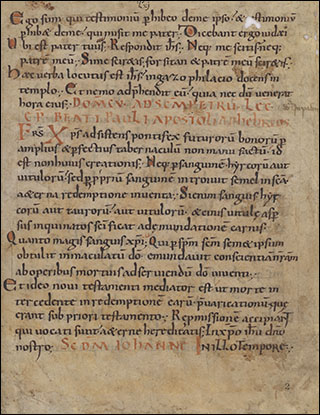 Ego sum qui testimoniū phibeo deme ipso. & testimoniū
phib& deme. qui misit me pater; Dicebant ergo iudæi
Vbi est pater tuus; Respondit ihs; Neq; me scitis neq;
patrē meū; Si me sciretis; forsitan & patrē meū sciretis;
Hæc uerba locutus est ihs; in gazophilacio docens in
templo. Et nemo adphendit eū quia nec dū uenerat
hora eius; DOM DE V AD SCM PETRŪ LEC
EPR BEATI PAVLI APOSTOLI AD HEBREOS
FRS Xps adsistens pontifex futurorū bonorū p
amplius & pfectius tabernaculū non manu factū. id
est non huius creationis; Neq; p sanguinē hyrcorū aut
uitulorū. sed p ppriū sanguinē introiuit semel in scā
æterna redemptione inuenta; Si enim sanguis hyr
corū aut taurorū aut uitulorū. & cinis uitulę aspsus
inquinatos scificat ad emundationē carnis.
Quanto magis sanguis xpi; Qui p spm scm sem& ipsum
obtulit inmaculatū dō. emundauit conscientiam nram
ab operibus mortuis ad seruiendū dō uiuenti;
Et ideo noui testamenti mediator est. ut morte in
tercedente in redemptionē earū puaricationū. quę
erant sub priori testamento. Repmissionē accipiant
qui uocati sunt æternę hereditatis; In xpo ihu dno
nostro; SCDM IOHANNE IN ILLO TEMPORE.
2